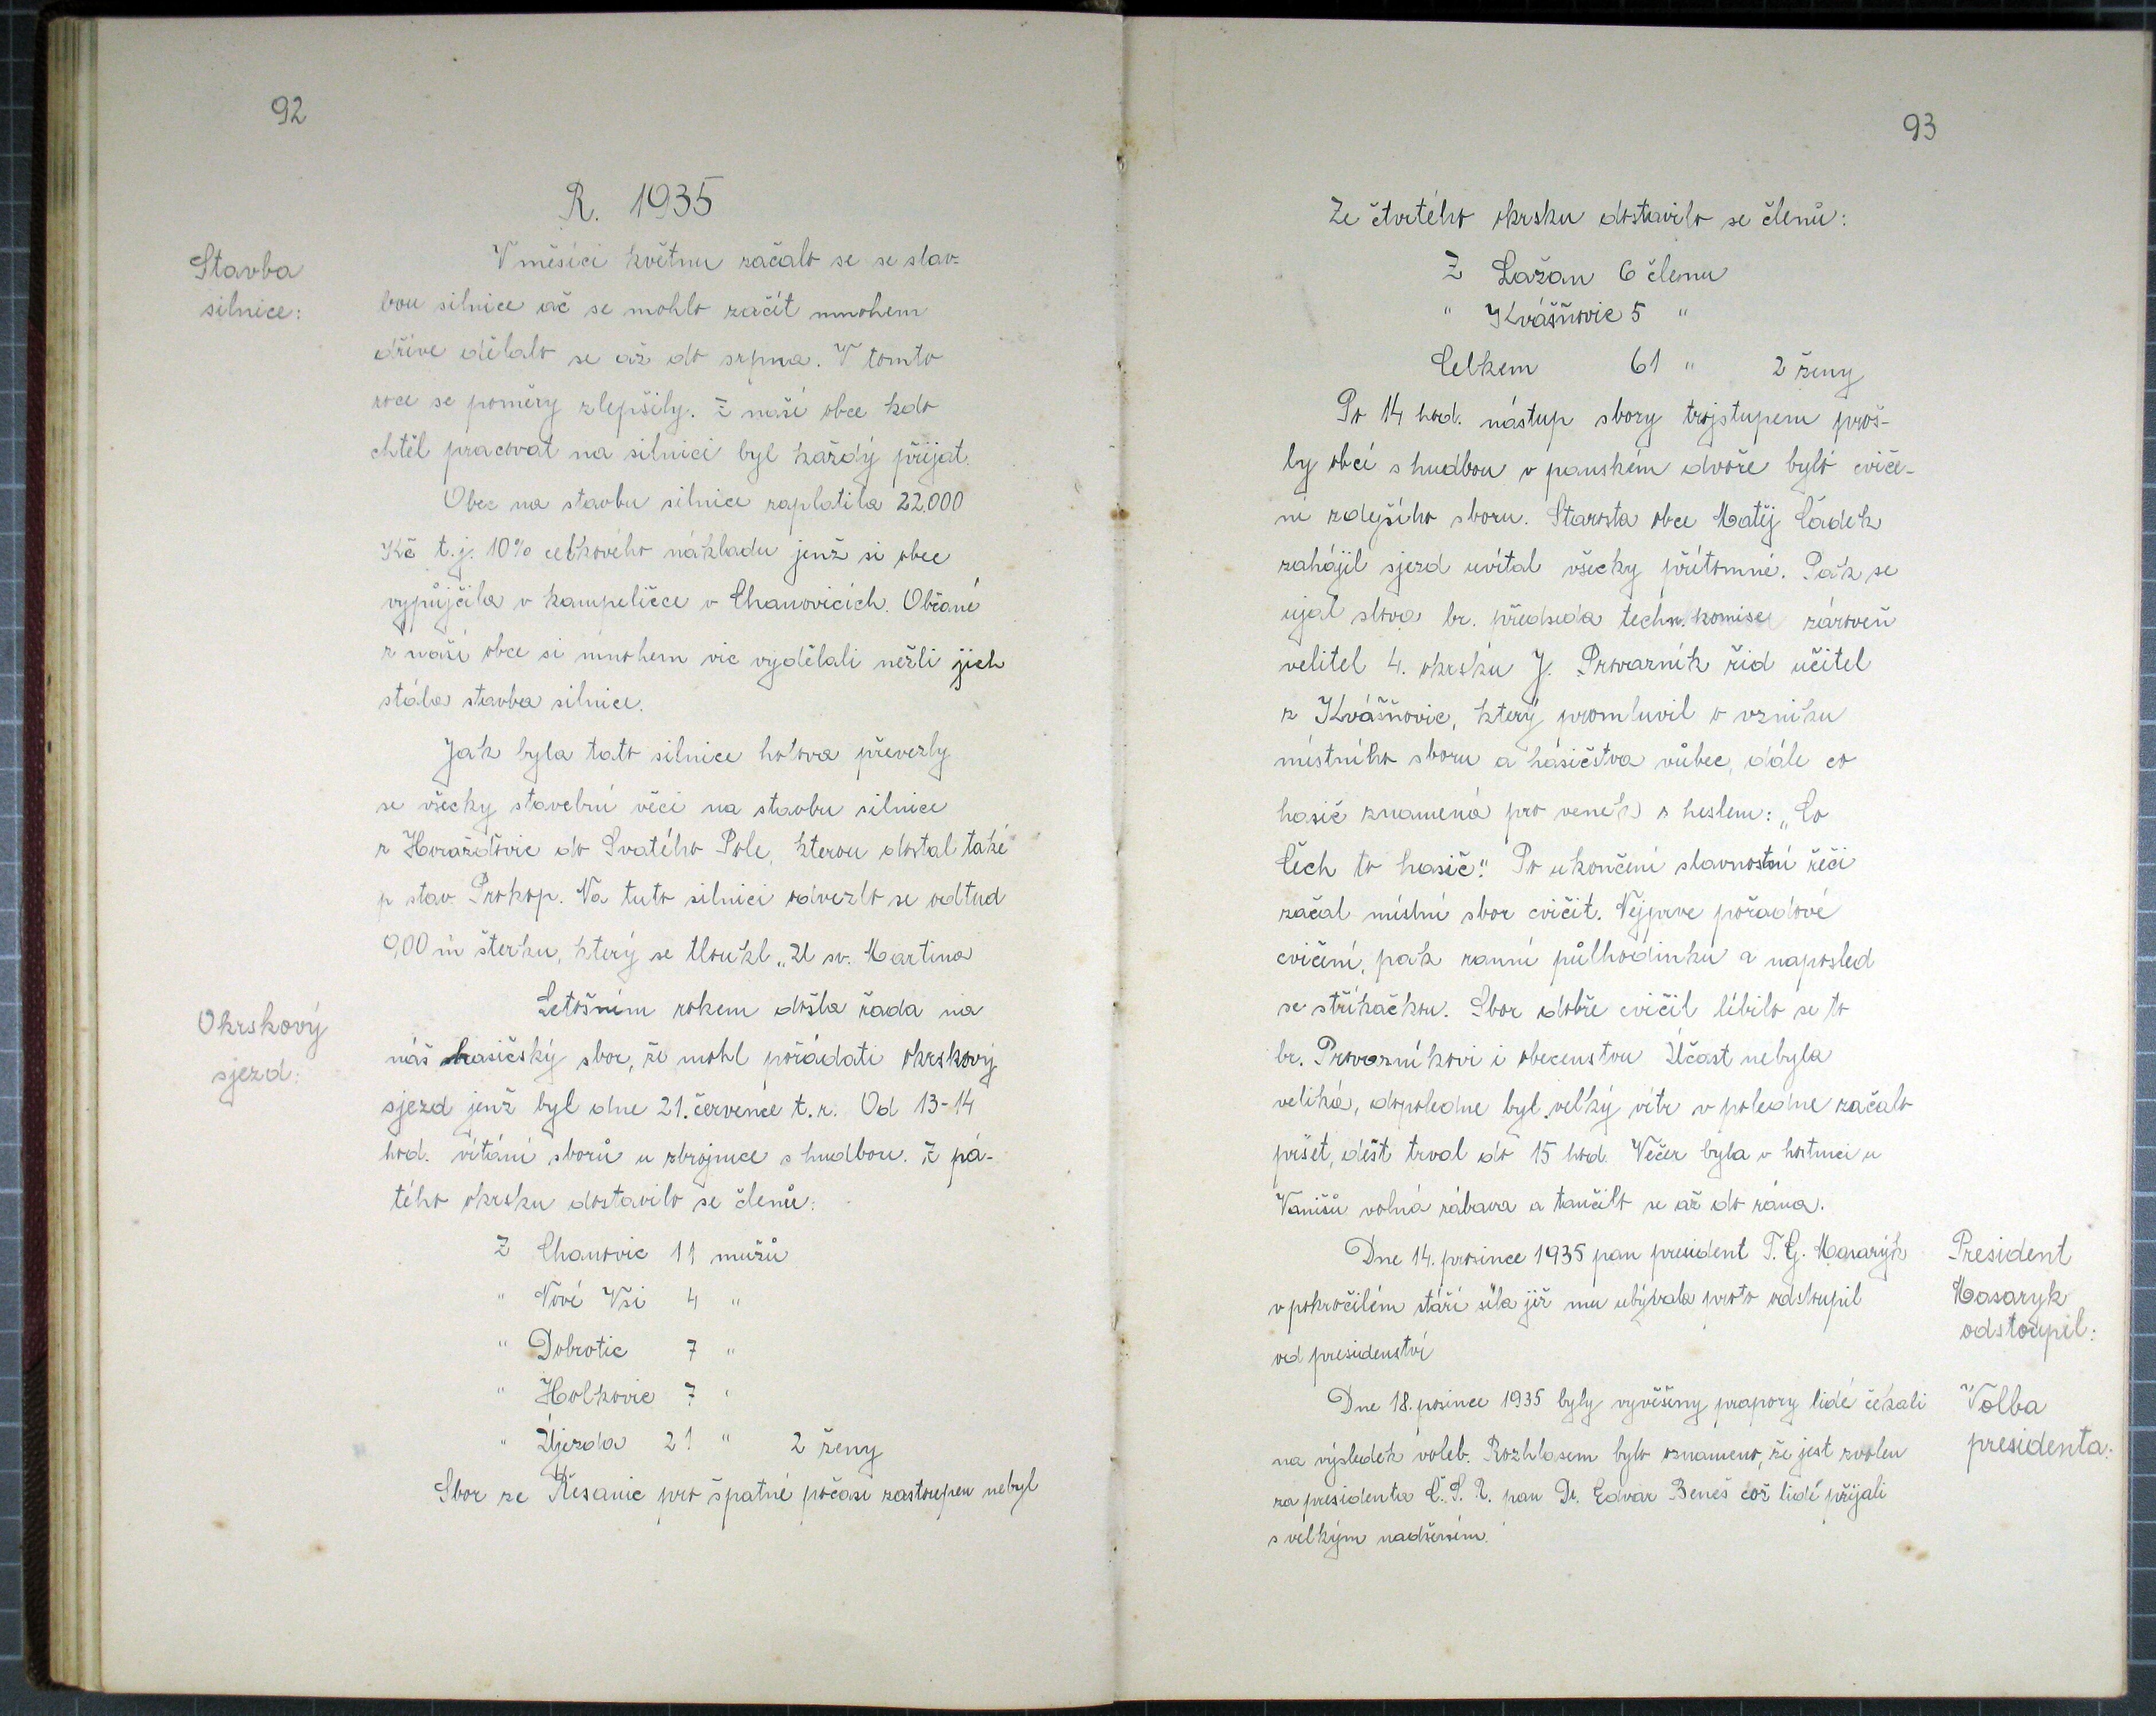 92
R. 1935
Stavba
silnice:
V měsíci květnu začalo se se stav-
bou silnice ač se mohlo začít mnohem
dříve dělalo se až do srpna. V tomto
roce se poměry zlepšily. Z naší obce kdo
chtěl pracovat na silnici byl každý přijat.
Obec na stavbu silnice zaplatila 22.000
Kč t.j. 10% celkového nákladu jenž si obec
vypůjčila v kampeličce v Chanovicích. Občané
z naší obce si mnohem víc vydělali nežli jich
stála stavba silnice.
Jak byla tato silnice hotova převezly
se všecky stavební věci na stavbu silnice
z Horažďovic do Svatého Pole, kterou dostal také
p stav. Prokop. Na tuto silnici odvezlo se odtud
900 m štěrku, který se tloukl „U sv. Martina
Okrskový
sjezd:
Letošním rokem došla řada na
náš hasičský sbor, že mohl pořádati okrskový
sjezd jenž byl dne 21. července t.r. Od 13-14
hod. vítání sborů u zbrojnice s hudbou. Z pá-
tého okrsku dostavilo se členů:
Z Chanovic 11 mužů
" Nové Vsi 4 "
" Dobrotic 7 "
" Holkovic 7 "
" Újezda 21 " 2 ženy
Sbor ze Kesanic pro špatné počasí zastoupen nebyl
93
Ze čtvrtého okrsku dostavilo se členů:
Z Lažan 6 členu
" Kvášňovic 5 "
Celkem 61 " 2 ženy
Po 14 hod. nástup sbory trojstupem proš-
ly obcí s hudbou v panském dvoře bylo cviče-
ní zdejšího sboru. Starosta obce Matěj Čadek
zahájil sjezd uvítal všecky přítomné. Pak se
ujal slova br. předseda techn. komise zároveň
velitel 4. okrsku J. Provazník říd učitel
z Kvášňovic, který promluvil o vzniku
místního sboru a hasičstva vůbec, dále co
hasič znamená pro venek s heslem: „Co
Čech to hasič". Po ukončení slavnostní řeči
začal místní sbor cvičit. Nejprve pořadové
cvičení, pak ranní půlhodinku a naposled
se stříkačkou. Sbor dobře cvičil líbilo se to
br. Provazníkovi i obecenstvu Účast nebyla
veliká, dopoledne byl velký vítr v poledne začalo
pršet, déšt trval do 15 hod. Večer byla v hostinci u
Vanišů volná zábava a tančilo se až do rána.
Dne 14. prosince 1935 pan president T. G. Masaryk
v pokročilém stáří síla již mu ubývala proto odstoupil
od presidenství
President
Masaryk
odstoupil:
Dne 18. prosince 1935 byly vyvěšeny prapory lidé čekali
na výsledek voleb. Rozhlasem bylo oznámeno, že jest zvolen
za presidenta Č. S. R. pan Dr. Edvar Beneš což lidé přijali
s velkým nadšením.
Volba
presidenta: